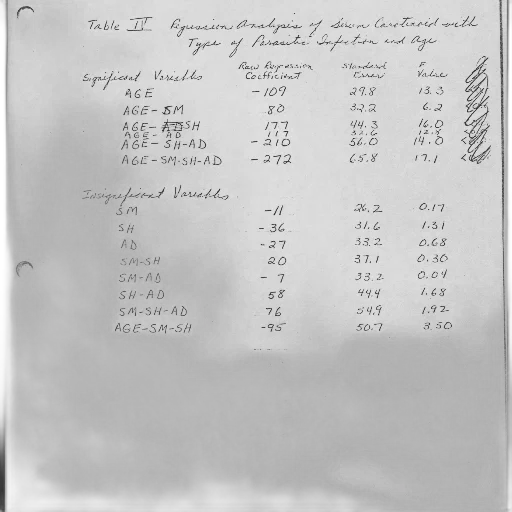 Table IV Regression Analysis of Serum Carotenoid with
Type of Parasitic Infection and Age
Significant Variables Raw Regression Coefficient Standard Error F Value
AGE -109 29.8 13.3
AGE-SM 80 32.2 6.2
AGE-SH 177 44.3 16.0
AGE-AD 117 32.6 12.8
AGE-SH-AD -210 56.0 14.0
AGE-SM-SH-AD -272 65.8 17.1
Insignificant Variables
SM -11 26.2 0.17
SH -36 31.6 1.31
AD -27 33.2 0.68
SM-SH 20 37.1 0.30
SM-AD -7 33.2 0.04
SH-AD 58 44.4 1.68
SM-SH-AD 76 54.9 1.92
AGE-SM-SH -95 50.7 3.50